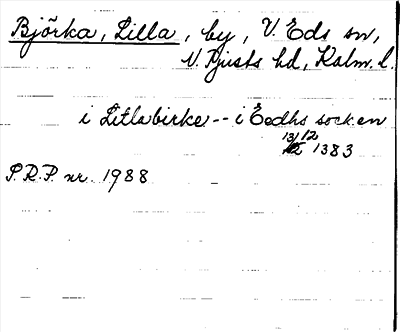 Björka, Lilla, by, V. Eds sn,
N. Tjusts hd, Kalm. l.
i Litlabirke -- i Eedhs socken
13/12 1383
P.R.P. nr. 1988